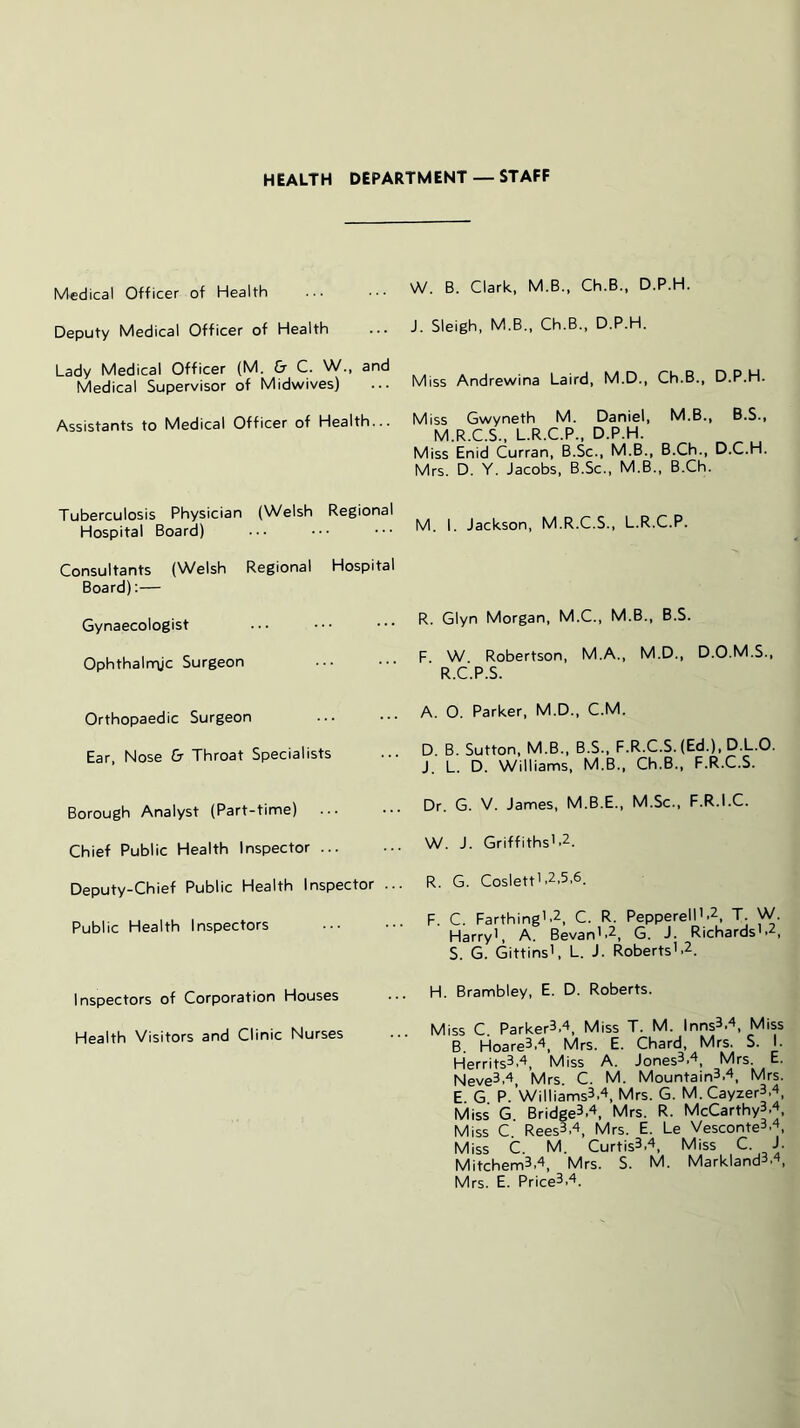 HEALTH DEPARTMENT — STAFF
Medical Officer of Health ... ... W. B. Clark, M.B., Ch.B., D.P.H.
Deputy Medical Officer of Health ... J. Sleigh, M.B., Ch.B., D.P.H.
Lady Medical Officer (M. & C. W., and
Medical Supervisor of Midwives) ... Miss Andrewina Laird, M.D., Ch.B., D.P.H.
Assistants to Medical Officer of Health... Miss Gwyneth M. Daniel, M.B., B.S.,
M.R.C.S., L.R.C.P., D.P.H.
Miss Enid Curran, B.Sc., M.B., B.Ch., D.C.H.
Mrs. D. Y. Jacobs, B.Sc., M.B., B.Ch.
Tuberculosis Physician (Welsh Regional
Hospital Board) ... ... ... M. I. Jackson, M.R.C.S., L.R.C.P.
Consultants (Welsh Regional Hospital
Board):—
Gynaecologist ... ... ... R. Glyn Morgan, M.C., M.B., B.S.
Ophthalmic Surgeon ... ... F. W. Robertson, M.A., M.D., D.O.M.S.,
R.C.P.S.
Orthopaedic Surgeon ... ... A. O. Parker, M.D., C.M.
Ear, Nose & Throat Specialists ... D. B. Sutton, M.B., B.S., F.R.C.S.(Ed.), D.L.O.
J. L. D. Williams, M.B., Ch.B., F.R.C.S.
Borough Analyst (Part-time) ... ... Dr. G. V. James, M.B.E., M.Sc., F.R.I.C.
Chief Public Health Inspector ... ... W. J. Griffiths1,2.
Deputy-Chief Public Health Inspector ... R. G. Coslett1,2,5,6.
Public Health Inspectors ... ... F. C. Farthing1,2, C. R. Pepperell1,2, T. W.
Harry1, A. Bevan1,2, G. J. Richards1,2,
S. G. Gittins1, L. J. Roberts1,2.
Inspectors of Corporation Houses ... H. Brambley, E. D. Roberts.
Health Visitors and Clinic Nurses ... Miss C. Parker3,4, Miss T. M. Inns3,4, Miss
B. Hoare3,4, Mrs. E. Chard, Mrs. S. I.
Herrits3,4, Miss A. Jones3,4, Mrs. E.
Neve3,4, Mrs. C. M. Mountain3,4, Mrs.
E. G. P. Williams3,4, Mrs. G. M. Cayzer3,4,
Miss G. Bridge3,4, Mrs. R. McCarthy3,4,
Miss C. Rees3,4, Mrs. E. Le Vesconte3,4,
Miss C. M. Curtis3,4, Miss C. J.
Mitchem3,4, Mrs. S. M. Markland3,4,
Mrs. E. Price3,4.